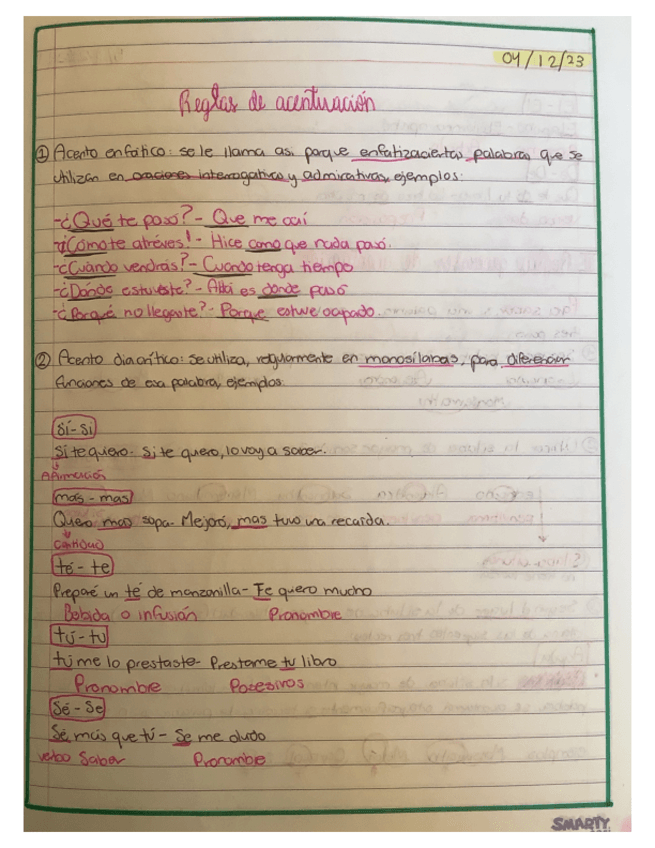 04/12/23
Reglas de acentuación
① Acento enfático: se le llama asi porque enfatiza ciertas palabras que se
utilizan en oraciones interrogativas y admirativas, ejemplos:
-¿Qué te pasó? - Que me caí
-¡Cómo te atréves! - Hice como que nada pasó.
-¿Cuándo vendrás? - Cuando tenga tiempo
-¿Dónde estuviste? - Allá es donde pasó
-¿Porqué no llegaste? - Porque estuve ocupado.
② Acento diacrítico: se utiliza, regularmente en monosílabas, para diferenciar
funciones de esa palabra, ejemplos:
Sí - Si
Sí te quiero. Si te quiero, lo voy a saber.
Afirmación
mas - mas
Quiero mas sopa. Mejoró, mas tuvo una recaída.
Cantidad
té - te
Preparé un té de manzanilla - Te quiero mucho
Bebida o infusión Pronombre
tú - tu
tú me lo prestaste - Prestame tu libro
Pronombre Posesivos
Sé - Se
Sé más que tú - Se me dudo
verbo Saber Pronombe
SMARTY